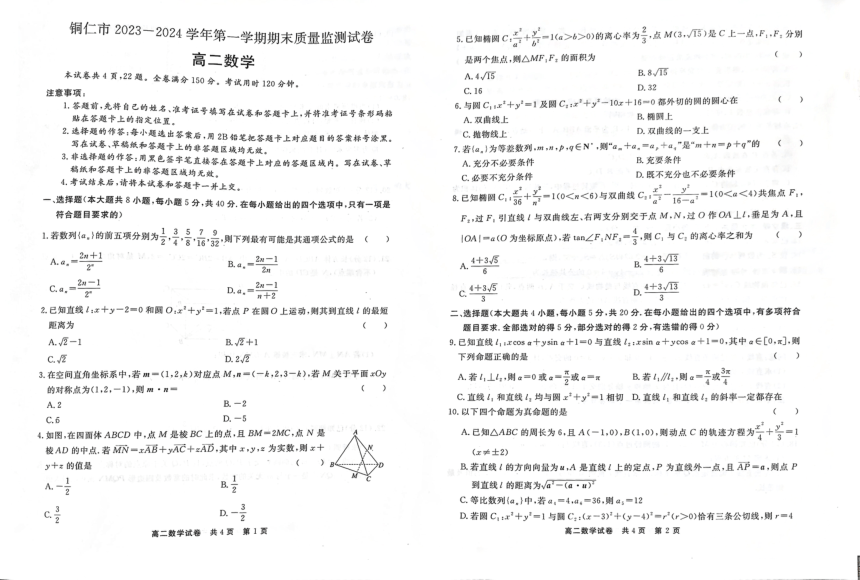 铜仁市 2023—2024 学年第一学期期末质量监测试卷
高二数学
本试卷共 4 页,22 题。全卷满分 150 分。考试用时 120 分钟。
注意事项:
1. 答题前,先将自己的姓名、准考证号填写在试卷和答题卡上,并将准考证号条形码粘
贴在答题卡上的指定位置。
2. 选择题的作答:每小题选出答案后,用 2B 铅笔把答题卡上对应题目的答案标号涂黑。
写在试卷、草稿纸和答题卡上的非答题区域均无效。
3. 非选择题的作答:用黑色签字笔直接答在答题卡上对应的答题区域内。写在试卷、草
稿纸和答题卡上的非答题区域均无效。
4. 考试结束后,请将本试卷和答题卡一并上交。
一、选择题(本大题共 8 小题,每小题 5 分,共 40 分.在每小题给出的四个选项中,只有一项是
符合题目要求的)
1. 若数列{aₙ}的前五项分别为 1/2, 3/4, 5/8, 7/16, 9/32,则下列最有可能是其通项公式的是 ( )
A. aₙ=(2n+1)/2ⁿ B. aₙ=(2n−1)/2n
C. aₙ=(2n−1)/2ⁿ D. aₙ=(2n−1)/(n+2)
2. 已知直线 l:x+y−2=0 和圆 O:x²+y²=1,若点 P 在圆 O 上运动,则其到直线 l 的最短
距离为 ( )
A. √2−1 B. √2+1
C. √2 D. 2√2
3. 在空间直角坐标系中,若 m=(1,2,k)对应点 M,n=(−k,2,3−k),若 M 关于平面 xOy
的对称点为(1,2,−1),则 m·n= ( )
A. 2 B. −2
C. 6 D. −5
4. 如图,在四面体 ABCD 中,点 M 是棱 BC 上的点,且 BM=2MC,点 N 是
棱 AD 的中点. 若 MN=xAB+yAC+zAD,其中 x,y,z 为实数,则 x+
y+z 的值是 ( )
A B C D M N
A. −1/2 B. 1/2
C. 3/2 D. −3/2
高二数学试卷 共 4 页 第 1 页
5. 已知椭圆 C:x²/a²+y²/b²=1(a>b>0)的离心率为 2/3,点 M(3,√15)是 C 上一点,F₁,F₂ 分别
是两个焦点,则△MF₁F₂ 的面积为 ( )
A. 4√15 B. 8√15
C. 16 D. 32
6. 与圆 C₁:x²+y²=1 及圆 C₂:x²+y²−10x+16=0 都外切的圆的圆心在 ( )
A. 双曲线上 B. 椭圆上
C. 抛物线上 D. 双曲线的一支上
7. 若{aₙ}为等差数列,m,n,p,q∈N*,则“aₘ+aₙ=aₚ+a_q”是“m+n=p+q”的 ( )
A. 充分不必要条件 B. 充要条件
C. 必要不充分条件 D. 既不充分也不必要条件
8. 已知椭圆 C₁:x²/36+y²/n=1(0<n<6)与双曲线 C₂:x²/a−y²/(16−a)=1(0<a<4)共焦点 F₁,
F₂,过 F₂ 引直线 l 与双曲线左、右两支分别交于点 M,N,过 O 作 OA⊥l,垂足为 A,且
|OA|=a(O 为坐标原点),若 tan∠F₁NF₂=4/3,则 C₁ 与 C₂ 的离心率之和为 ( )
A. (4+3√5)/6 B. (4+3√13)/6
C. (4+3√5)/3 D. (4+3√13)/3
二、选择题(本大题共 4 小题,每小题 5 分,共 20 分.在每小题给出的四个选项中,有多项符合
题目要求.全部选对的得 5 分,部分选对的得 2 分,有选错的得 0 分)
9. 已知直线 l₁:xcos α+ysin α+1=0 与直线 l₂:xsin α+ycos α+1=0,其中 α∈[0,π],则
下列命题正确的是 ( )
A. 若 l₁⊥l₂,则 α=0 或 α=π/2 或 α=π B. 若 l₁∥l₂,则 α=π/4 或 3π/4
C. 直线 l₁ 和直线 l₂ 均与圆 x²+y²=1 相切 D. 直线 l₁ 和直线 l₂ 的斜率一定都存在
10. 以下四个命题为真命题的是 ( )
A. 已知△ABC 的周长为 6,且 A(−1,0),B(1,0),则动点 C 的轨迹方程为 x²/4+y²/3=1
(x≠±2)
B. 若直线 l 的方向向量为 u,A 是直线 l 上的定点,P 为直线外一点,且 AP=a,则点 P
到直线 l 的距离为√(a²−(a·u)²)
C. 等比数列{aₙ}中,若 a₁=4,a₅=36,则 a₃=12
D. 若圆 C₁:x²+y²=1 与圆 C₂:(x−3)²+(y−4)²=r²(r>0)恰有三条公切线,则 r=4
高二数学试卷 共 4 页 第 2 页